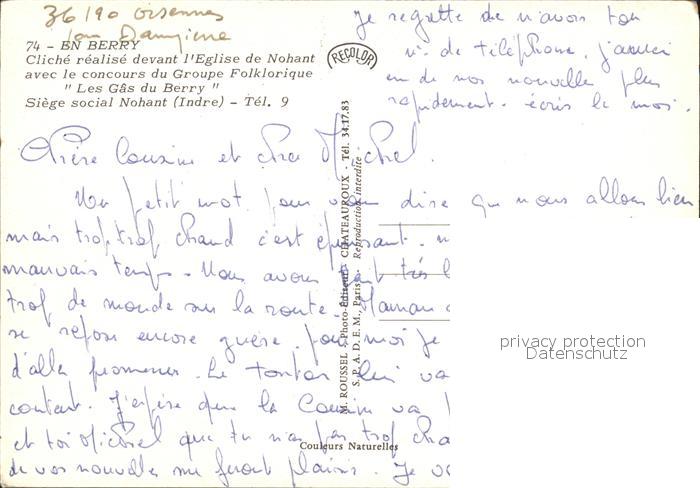 36190 Orsennes
Je regrette de n'avoir ton
n° de téléphone, j'aurai
eu de nos nouvelle plus
rapidement. écris le moi.
74 - EN BERRY
Cliché réalisé devant l'Eglise de Nohant
avec le concours du Groupe Folklorique
" Les Gâs du Berry "
Siège social Nohant (Indre) - Tél. 9
RECOLOR
Chère Cousine et cher Michel.
Un petit mot pour vous dire que nous allons bien
mais trop trop chaud c'est épuisant.
mauvais temps. Nous avons très
trop de monde sur la route. Maman
se repose encore guère. pour moi je
d'aller promener. Le tonton lui va
content. J'espère que la Cousine va
et toi Michel que tu n'as pas trop cha
de vos nouvelles me feront plaisir. Je
M. ROUSSEL - Photo-Editeur - CHATEAUROUX - Tél. 34.17.83
S. P. A. D. E. M., Paris - Reproduction interdite
Couleurs Naturelles
privacy protection
Datenschutz